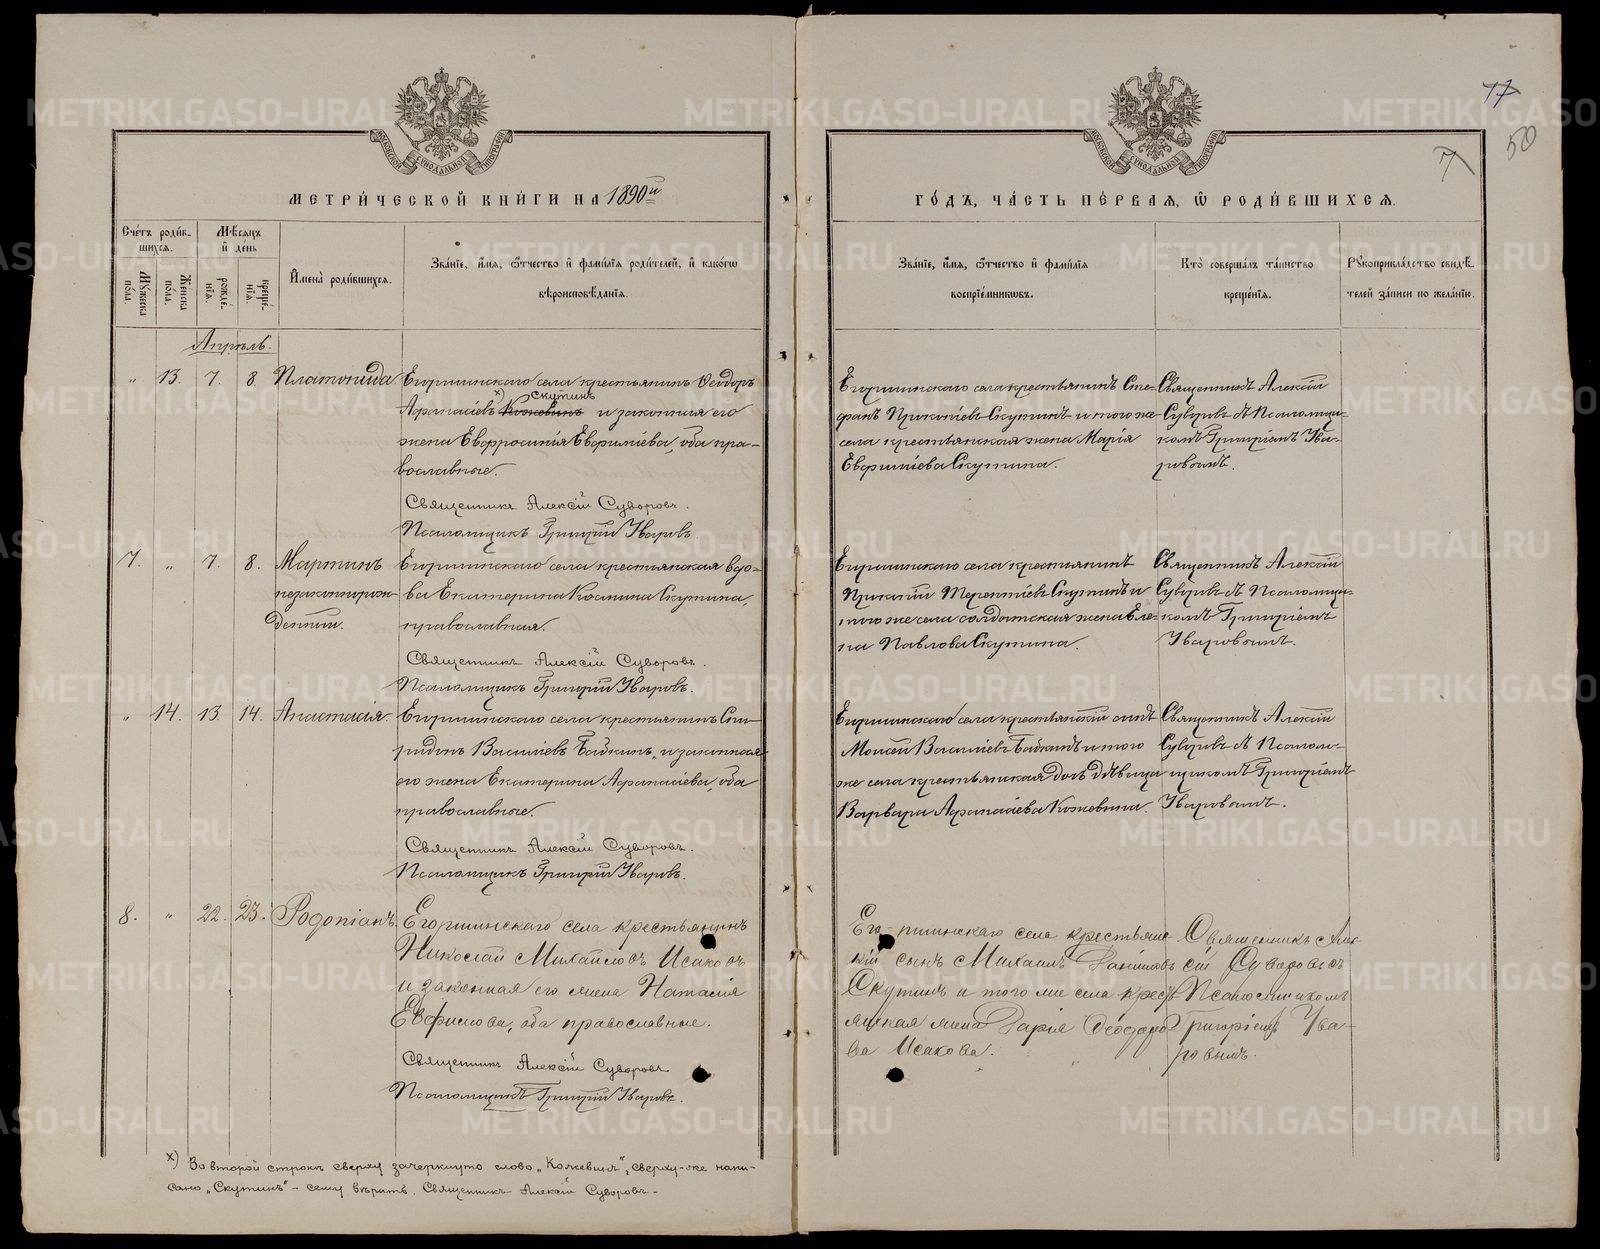 METRIKI.GASO-URAL.RU
17
50
7
МОСКОВСКОЙ СѴНОДАЛЬНОЙ ТИПОГРАФІИ
МОСКОВСКОЙ СѴНОДАЛЬНОЙ ТИПОГРАФІИ
МЕТРИ́ЧЕСКОЙ КНИ́ГИ НА 1890й
ГО́ДЪ, ЧА́СТЬ ПЕ́РВАЯ, Ѡ РОДИ́ВШИХСЯ.
Сче́тъ роди́в-
шихся.
Му́жеска по́ла.
Же́нска по́ла.
Мѣ́сяцъ
и де́нь
рожде́-
нїя.
креще́-
нїя.
И́мена̀ роди́вшихся.
Зва́нїе, и́мя, ѻ́тчество и фами́лїя роди́телей, и како́гѡ
вѣроисповѣ́данїя.
Зва́нїе, и́мя, ѻ́тчество и фами́лїя
воспрїе́мникѡвъ.
Кто̀ соверша́лъ та́инство
креще́нїя.
Рꙋкоприкла́дство свидѣ́-
телей за́писи по жела́нїю.
Апрѣль.
„ 13. 7. 8. Платонида
Егоршинскаго села крестьянинъ Ѳеодоръ
х) Скутинъ
Афанасіевъ Кожевинъ и законная его
жена Евфросинія Евфиміева, оба пра-
вославные.
Священникъ Алексій Суворовъ.
Псаломщикъ Григорій Уваровъ
Егоршинскаго села крестьянинъ Сте-
фанъ Прокопіевъ Скутинъ и того же
села крестьянская жена Марія
Евфиміева Скутина.
Священникъ Алексій
Суворовъ съ Псаломщи-
комъ Григоріемъ Ува-
ровымъ.
7. „ 7. 8. Мартинъ
незаконнорож-
денный.
Егоршинскаго села крестьянская вдо-
ва Екатерина Космина Скутина,
православная.
Священникъ Алексій Суворовъ.
Псаломщикъ Григорій Уваровъ.
Егоршинскаго села крестьянинъ
Прокопій Терентіевъ Скутинъ и
того же села солдатская жена Еле-
на Павлова Скутина.
Священникъ Алексій
Суворовъ съ Псаломщи-
комъ Григоріемъ
Уваровымъ.
„ 14. 13. 14. Анастасія.
Егоршинскаго села крестьянинъ Спи-
ридонъ Василіевъ Бабкинъ, и законная
его жена Екатерина Афанасіева, оба
православные.
Священникъ Алексій Суворовъ.
Псаломщикъ Григорій Уваровъ.
Егоршинскаго села крестьянскій сынъ
Моисей Василіевъ Бабкинъ и того
же села крестьянская дочь дѣвица
Варвара Афанасіева Кожевина.
Священникъ Алексій
Суворовъ съ Псалом-
щикомъ Григоріемъ
Уваровымъ.
8. „ 22. 23. Родоніанъ.
Егоршинскаго села крестьянинъ
Николай Михайловъ Исаковъ
и законная его жена Наталія
Евфимова, оба православные.
Священникъ Алексій Суворовъ
Псаломщикъ Григорій Уваровъ.
Егоршинскаго села крестьянс
кій сынъ Михаилъ Даніиловъ
Скутинъ и того же села кресть
янская жена Дарія Ѳеодоро
ва Исакова.
Священникъ Алек
сій Суворовъ съ
Псаломщикомъ
Григоріемъ Ува-
ровымъ.
х) Во второй строкѣ сверху зачеркнуто слово „Кожевинъ", сверху-же напи-
сано „Скутинъ" – сему вѣрить. Священникъ Алексій Суворовъ –